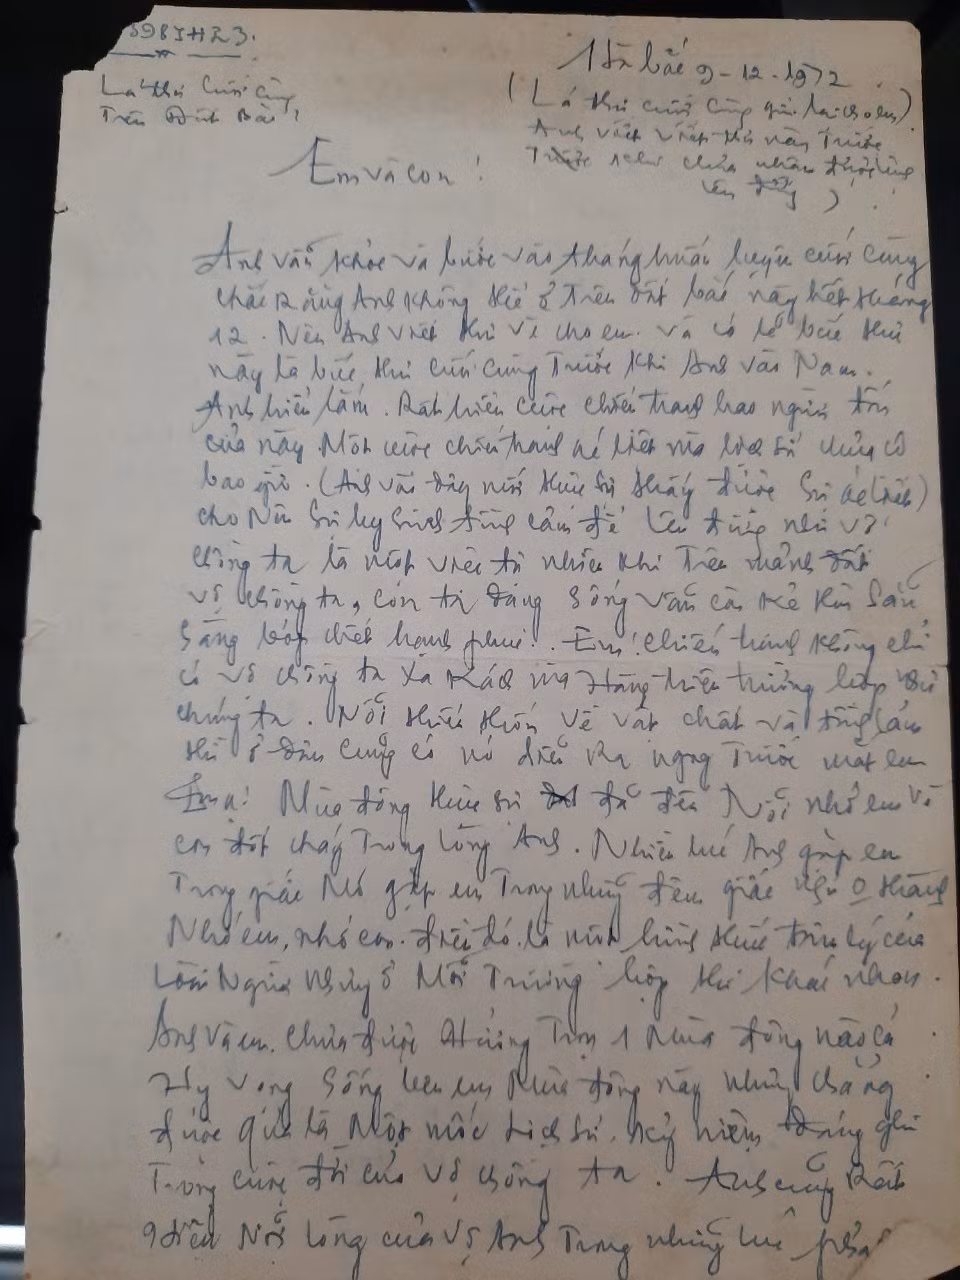 598JH23.
Lá thư cuối cùng
Trên Đất Bắc!
Hà bắc 9-12-1972
(Lá thư cuối cùng gửi lại cho em)
Anh viết thư này trước
chưa nhận được
lên đường)
Em và con!
Anh vẫn khỏe và bước vào tháng huấn luyện cuối cùng
chắc Rằng Anh không thể ở Trên đất bắc này hết tháng
12. Nên Anh viết thư về cho em. và có lẽ bức thư
này là bức thư cuối cùng Trước khi Anh vào Nam.
Anh hiểu lắm. Rất hiểu cuộc chiến tranh hao người tốn
của này. Một cuộc chiến tranh ác liệt mà lịch sử chưa có
bao giờ. (Anh vào đây mới thực sự thấy được Sự ác liệt)
cho Nên Sự hy sinh tình cảm để lên đường như vợ
chồng ta là một việc tự nhiên khi Trên mảnh đất
vợ chồng ta, con ta đang Sống vẫn còn kẻ thù Sẵn
Sàng bóp chết hạnh phúc!. Em! chiến tranh không chỉ
có vợ chồng ta xa cách mà Hàng triệu trường hợp như
chúng ta. Nỗi thiếu thốn về vật chất và tình cảm
thì ở đâu cũng có nó diễn Ra ngay Trước mắt em
Em ạ! Mùa đông thực sự đã đến Nỗi nhớ em và
con đốt cháy Trong lòng Anh. Nhiều lúc Anh gặp em
Trong giấc Mơ gặp em Trong những đêm giấc ngủ
Nhớ em, nhớ con. điều đó là một hình thức tâm lý của
Loài Người Nhưng ở Mỗi Trường hợp thì khác nhau.
Anh và em. chưa được Hưởng Trọn 1 Mùa đông nào cả
Hy vọng Sống bên em Mùa đông này nhưng chẳng
được quả là Một mốc Lịch sử. kỷ niệm đáng ghi
Trong cuộc đời của vợ chồng ta. Anh cũng Rất
hiểu Nỗi lòng của vợ Anh Trong những lúc phải